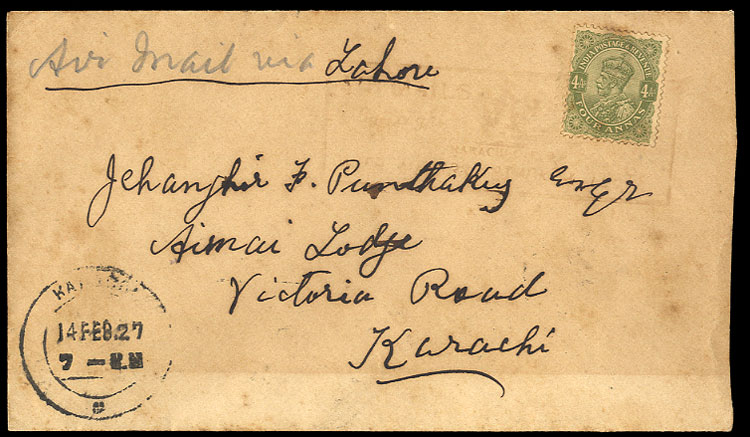 Air Mail via Lahore
INDIA POSTAGE & REVENUE
4As 4As
FOUR ANNAS
Jehanghir F. Punthakey Esqr
Aimai Lodge
Victoria Road
Karachi
14 FEB.27
7